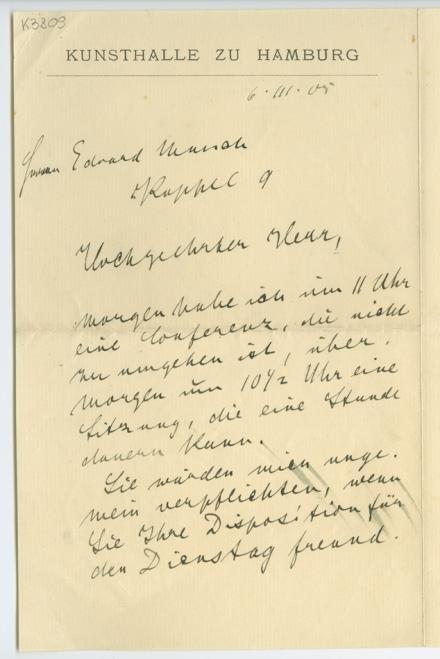 K3809
KUNSTHALLE ZU HAMBURG
6. III. 05
Herrn Edvard Munch
Koppel 9
Hochgeehrter Herr,
morgen habe ich um 11 Uhr
eine Conferenz, die nicht
zu umgehen ist, über.
morgen um 10½ Uhr eine
Sitzung, die eine Stunde
dauern kann.
Sie würden mich unge-
mein verpflichten, wenn
Sie Ihre Disposition für
den Dienstag freund-